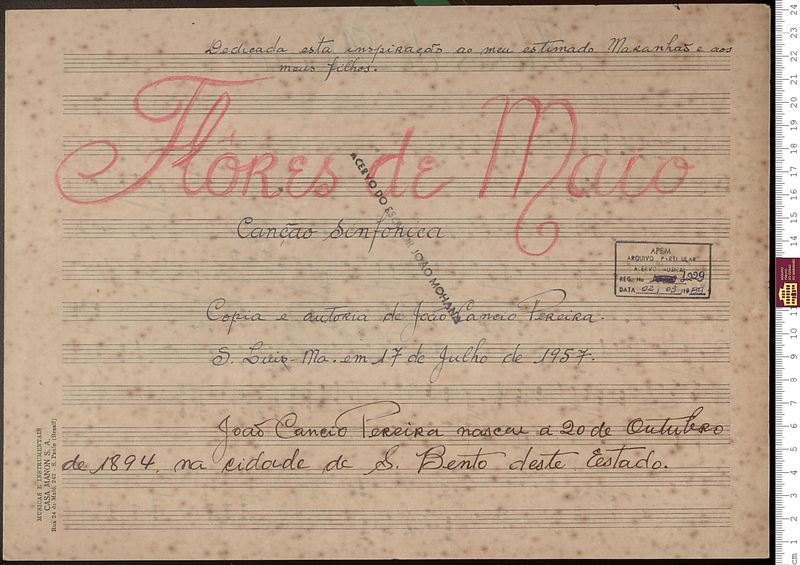 Dedicada esta inspiração ao meu estimado Maranhão e aos
meus filhos.
Flôres de Maio
Canção Sinfonica
ACERVO DO ESCRITOR JOÃO MOHANA
APEM
ARQUIVO PARTICULAR
ACERVO MUSICAL
REG. No 1029
DATA 02 / 03 / 19
Copia e autoria de João Cancio Pereira.
S. Luis - Ma. em 17 de Julho de 1957.
João Cancio Pereira nasceu a 20 de Outubro
de 1894, na cidade de S. Bento deste Estado.
MUSICAS E INSTRUMENTAIS
CASA MANON S. A.
Rua 24 de Maio, 242 - S. Paulo (Brasil)
cm 1 2 3 4 5 6 7 8 9 10 11 14 15 16 17 18 19 20 21 22 23 24